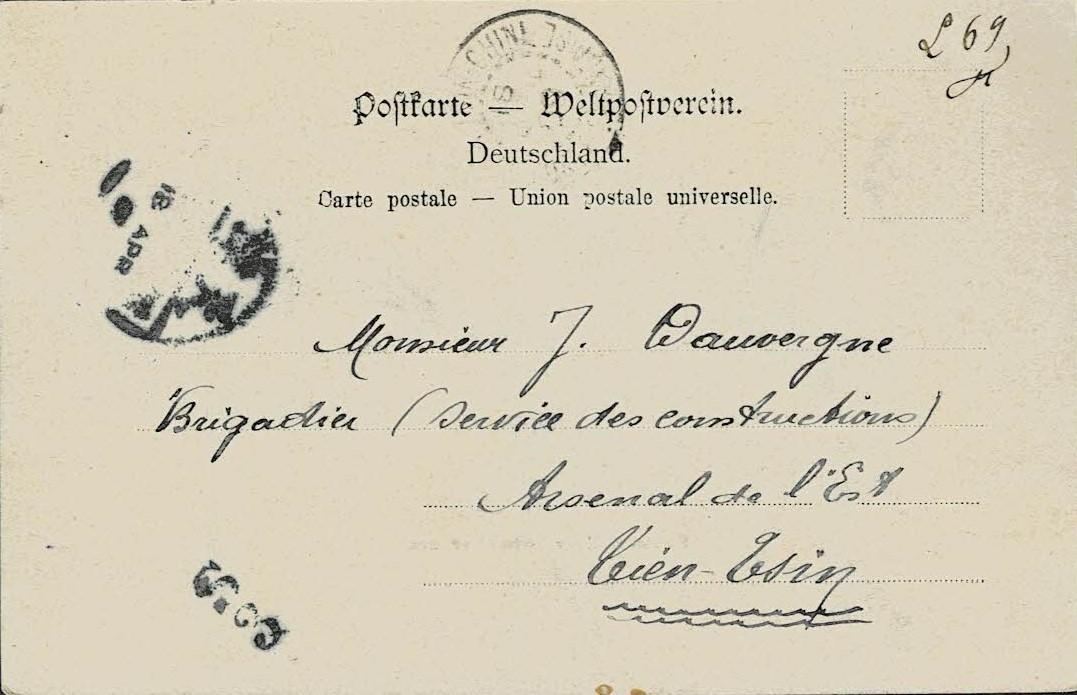 L 69
Postkarte — Weltpostverein.
Deutschland.
Carte postale — Union postale universelle.
APR
Monsieur J. Dauvergne
Brigadier (Service des constructions)
Arsenal de l'Est
Tién-Tsin